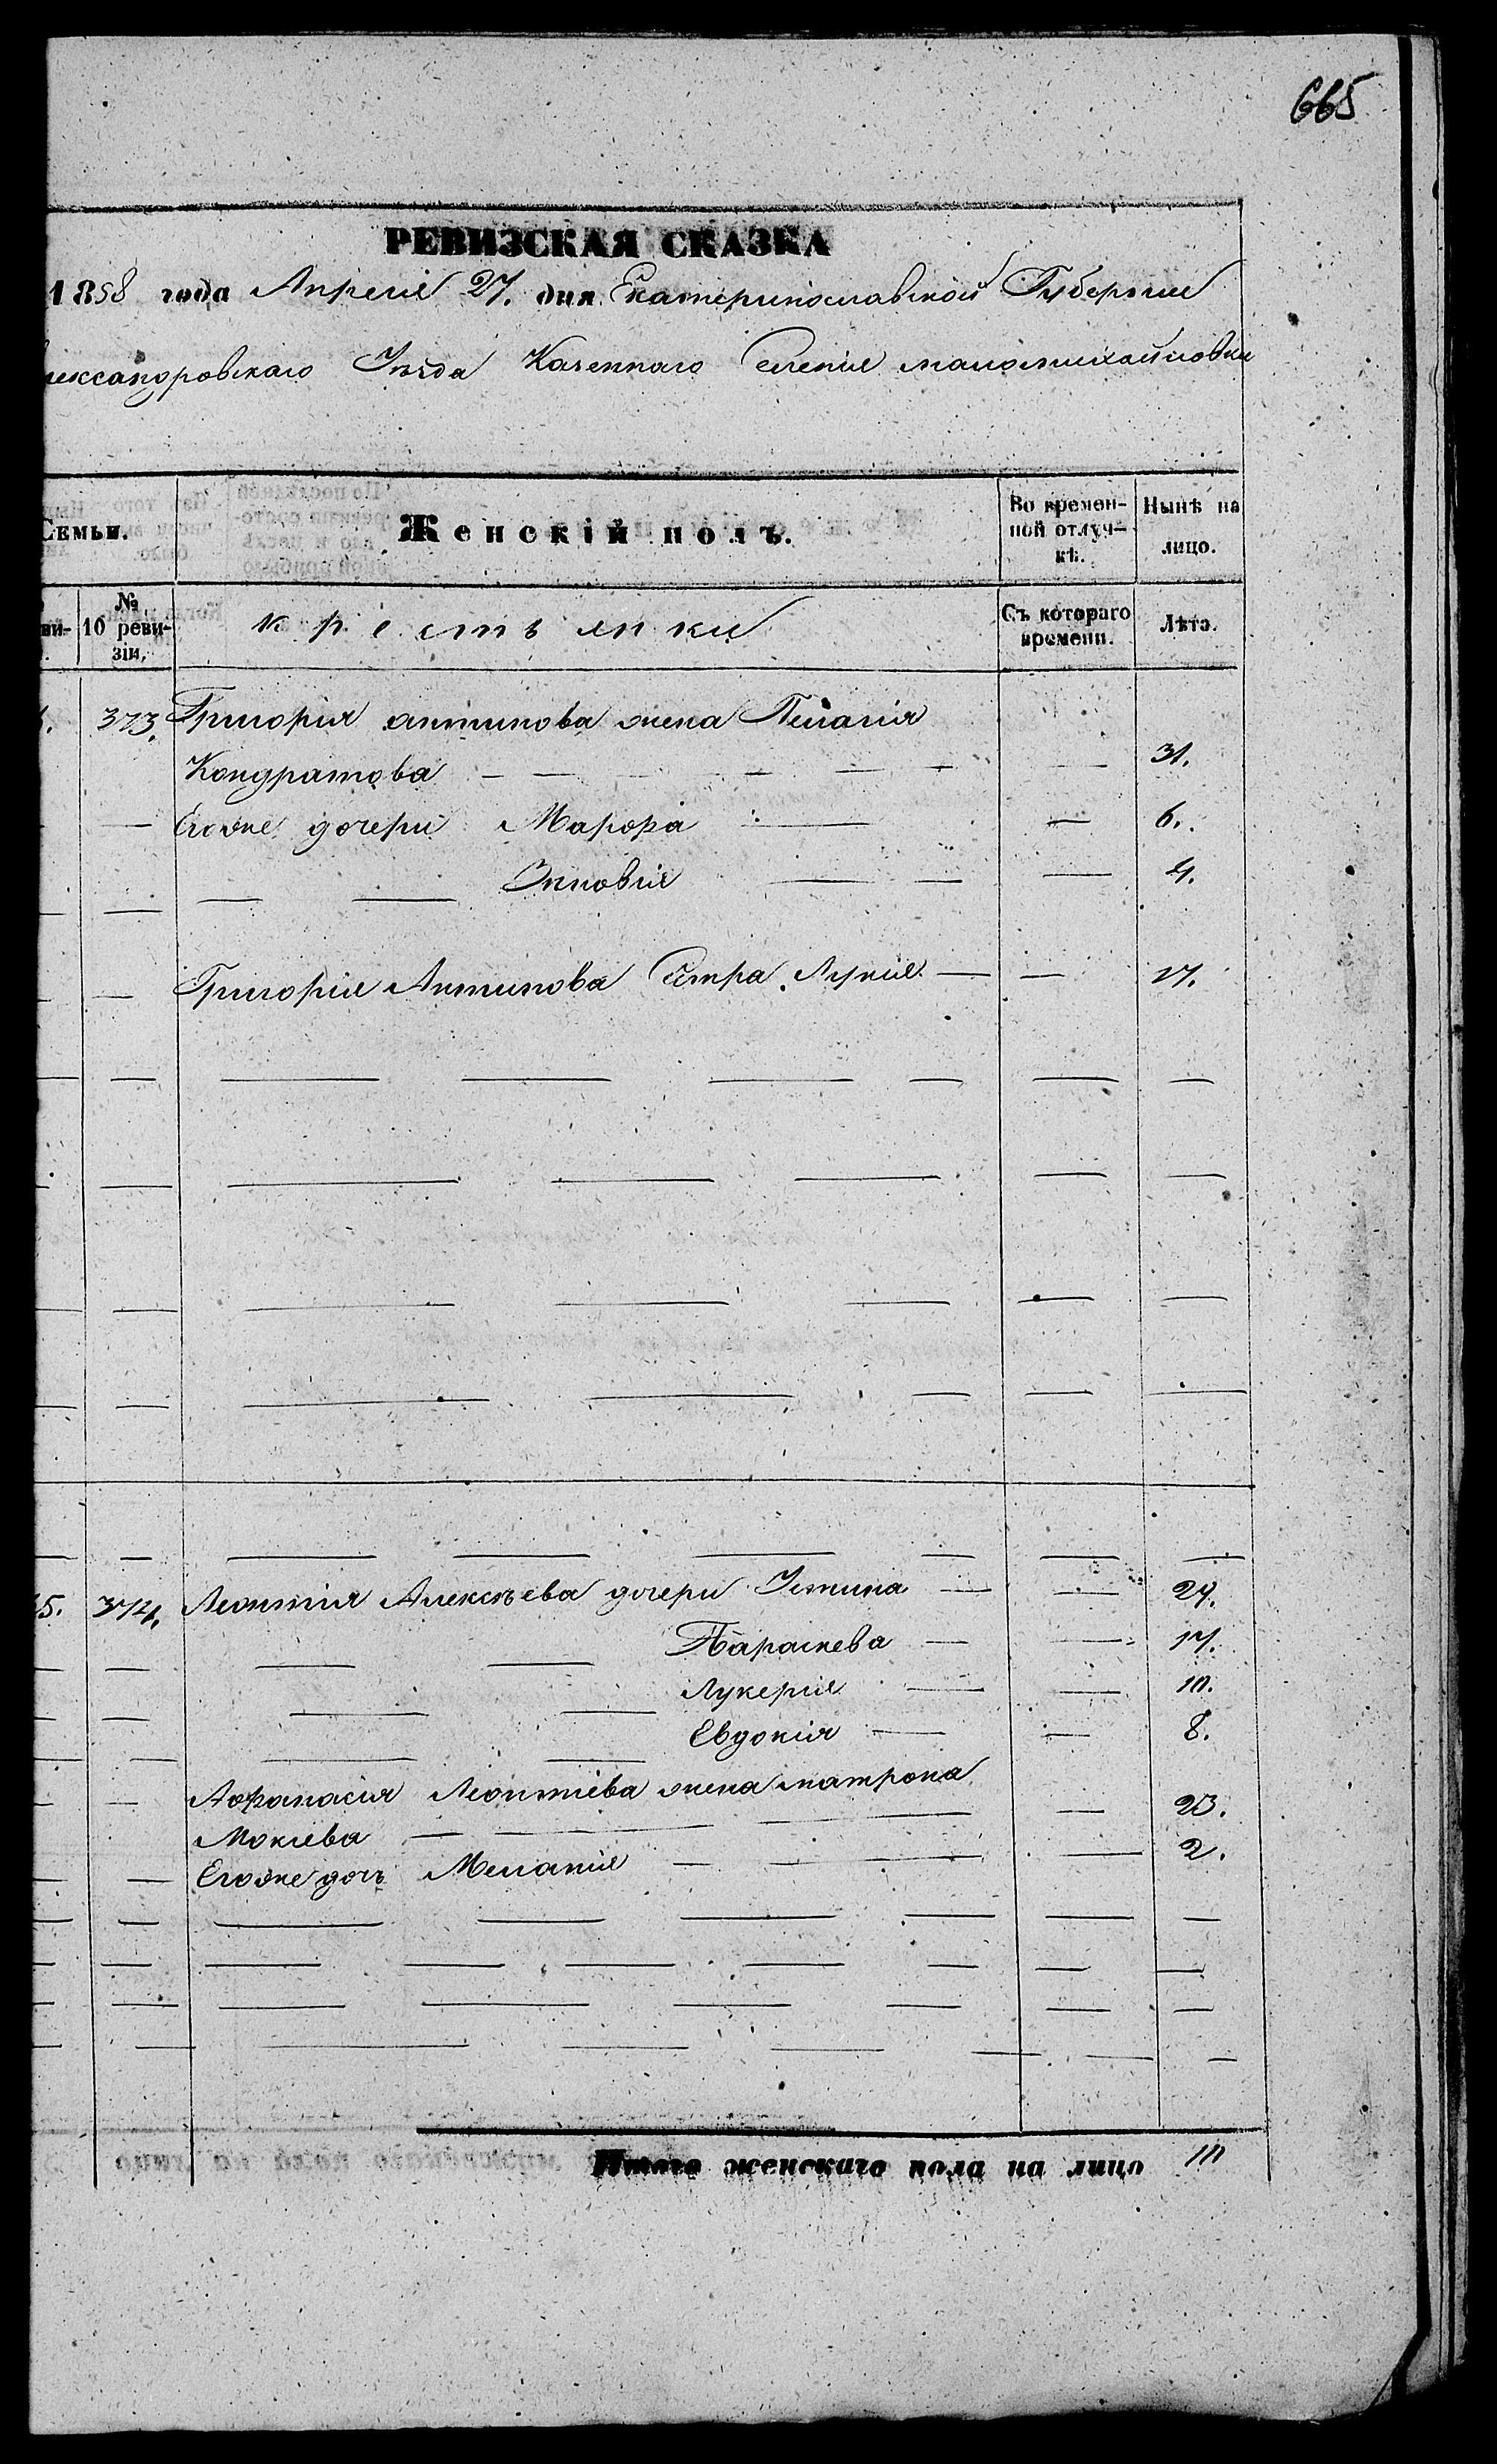 665
РЕВИЗСКАЯ СКАЗКА
1858 года Апреля 27. дня Екатеринославской Губернии
лександровскаго Уѣзда Казеннаго Селенія маломихайловки
Семьи. Женскій полъ. Во времен- Нынѣ на
ной отлуч- лицо.
кѣ.
ви- № 10 реви- крестьянки Съ котораго Лѣта.
зіи, времени.
373. Григорія антипова жена Пелагія
Кондратова — — — — — — 31.
— Егоже дочери Марфа — — 6.
— — — Зиновія — — — 4.
— — Григорія Антипова Сестра Лукія — — 17.
5. 374. Леонтія Алексѣева дочери Устина — — 24.
— — — — Параскева — — 17.
— — — — Лукерія — — 10.
— — — — Евдокія — — 8.
— — Афанасія Леонтіева жена матрона
Мокіева — — — — 23.
— — Егоже дочь Меланія — — — 2.
Итого женскаго пола на лицо 10